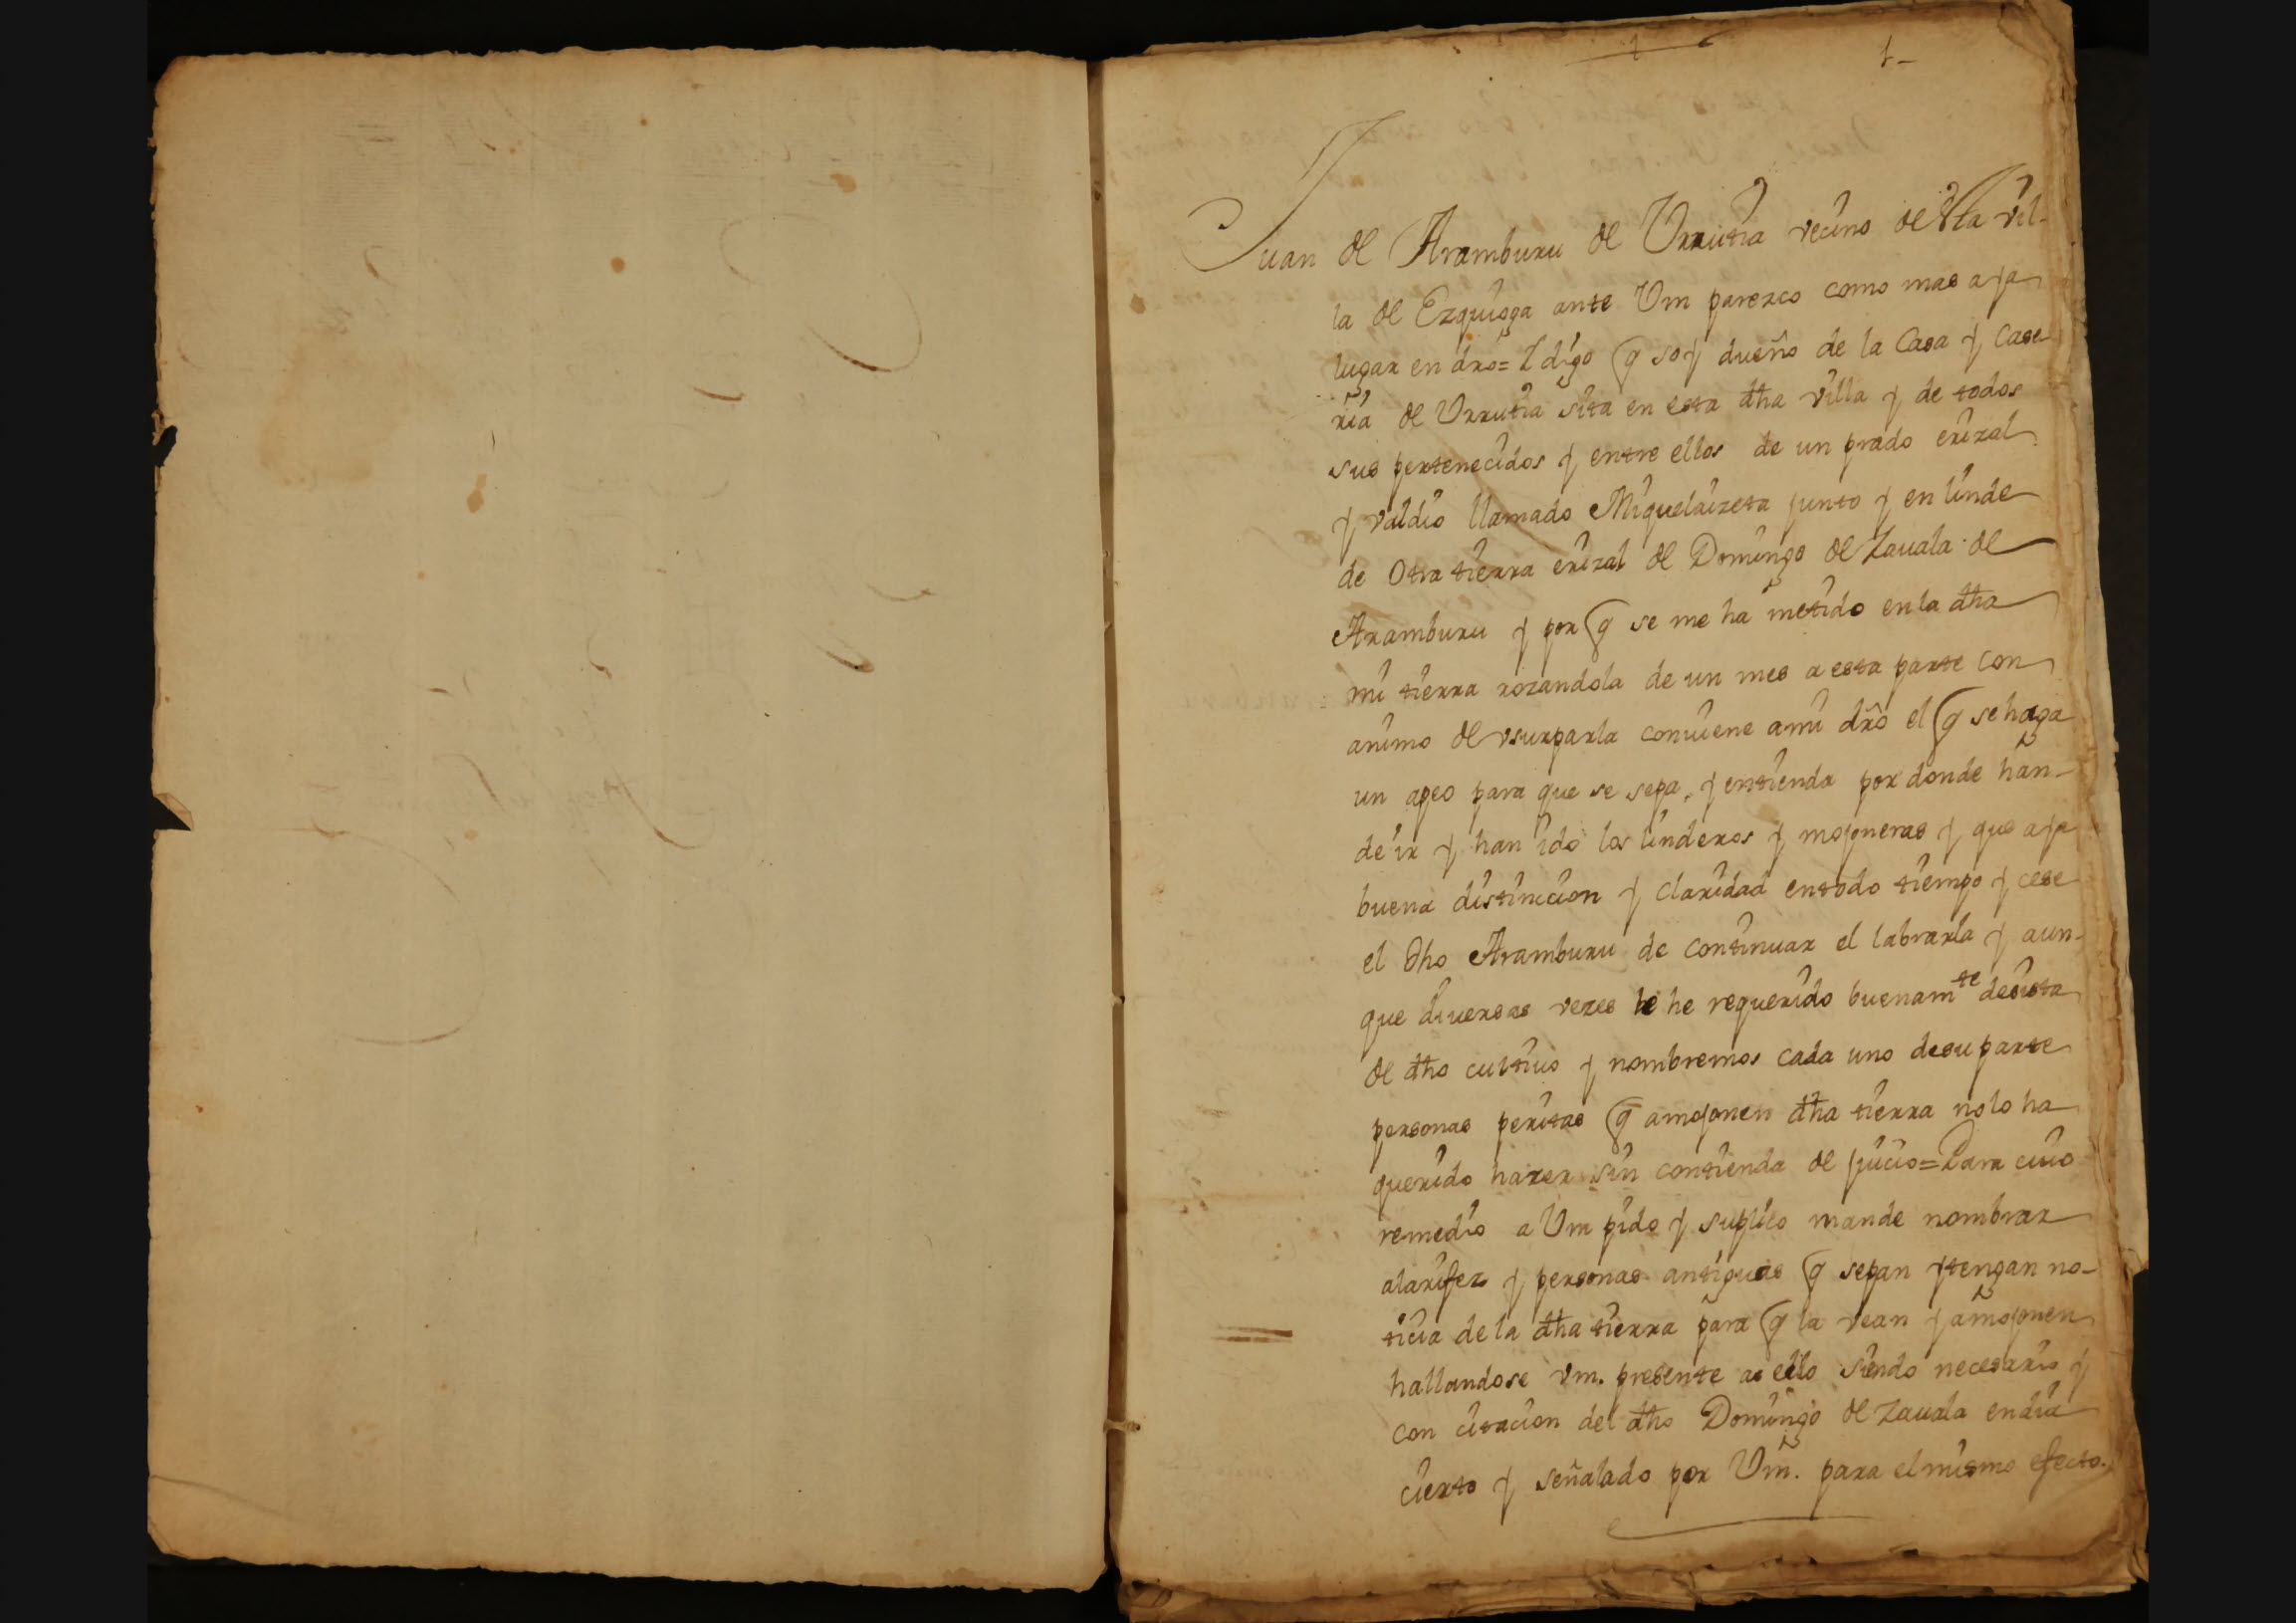 1
1-
Juan de Aramburu de Urrutia vecino de esta vil-
la de Ezquioga ante Vm parezco como mas aya
lugar en dro= I digo q soy dueño de la Casa y Case-
ria de Urrutia sita en esta dha villa y de todos
sus pertenecidos y entre ellos de un prado erizal
y valdio llamado Miquelaizeta junto y en linde
de otra tierra erizal de Domingo de Zauala de
Aramburu y por q se me ha metido en la dha
mi tierra rozandola de un mes a esta parte con
animo de vsurparla conuiene a mi dro el q se haga
un apeo para que se sepa, y entienda por donde han
de ir y han ido los linderos y mojoneras y que aya
buena distincion y claridad en todo tiempo y cese
el dho Aramburu de continuar el labrarla y aun-
que diuersas vezes le he requerido buenamte desista
de dho cultiuo y nombremos cada uno de su parte
personas peritas q amojonen dha tierra no lo ha
querido hazer sin contienda de juicio= Para cuio
remedio a Vm pido y suplico mande nombrar
alarifez y personas antiguas q sepan y tengan no-
ticia de la dha tierra para q la vean y amojonen
hallandose vm. presente a ello siendo necesario y
con citacion del dho Domingo de Zauala en dia
cierto y señalado por Vm. para el mismo efecto.